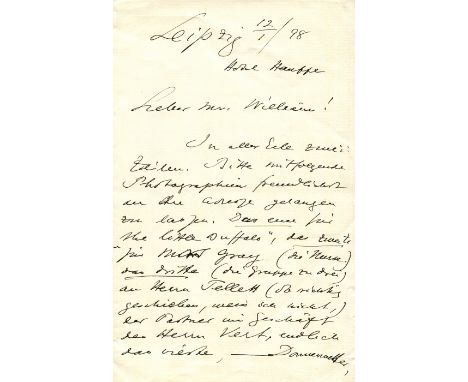 Leipzig 12/1/98
Hotel Hauffe
Lieber Mr. William!
In aller Eile zwei
Zeilen. Bitte mitfolgende
Photographien freundlichst
an ihre Adresse gelangen
zu lassen. Das eine für
"the little Duffols", das zweite
für Gray (die Nurse)
das dritte (die Gruppe zu drei)
an Herrn Tellett (Ob richtig
geschrieben, weiss ich nicht,)
der Partner im Geschäft
des Herrn Vert, endlich
das vierte, —